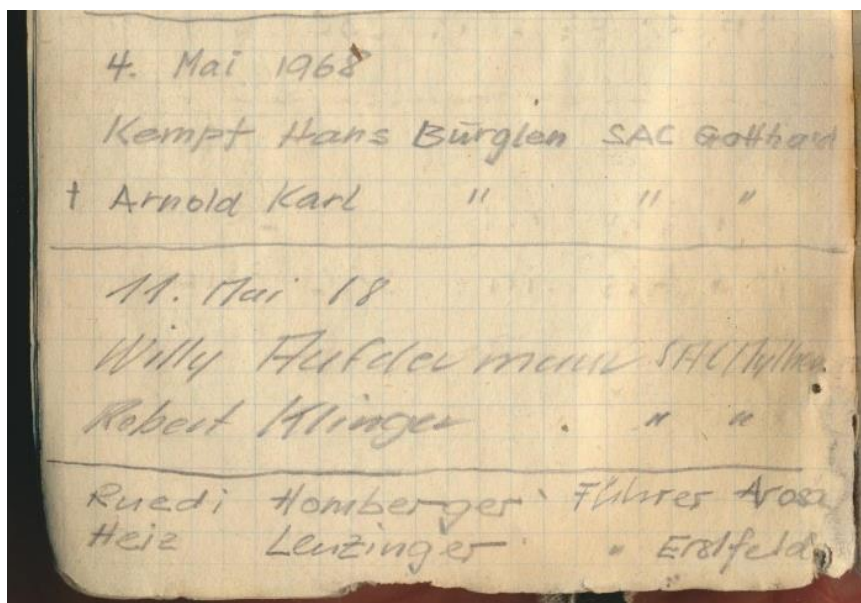 4. Mai 1968
Kempf Hans Bürglen SAC Gotthard
† Arnold Karl " " "
11. Mai 18
Willy Aufdermaur SAC Mythen
Robert Klinger " "
Ruedi Homberger Führer Arosa
Heiz Lenzinger " Erstfeld